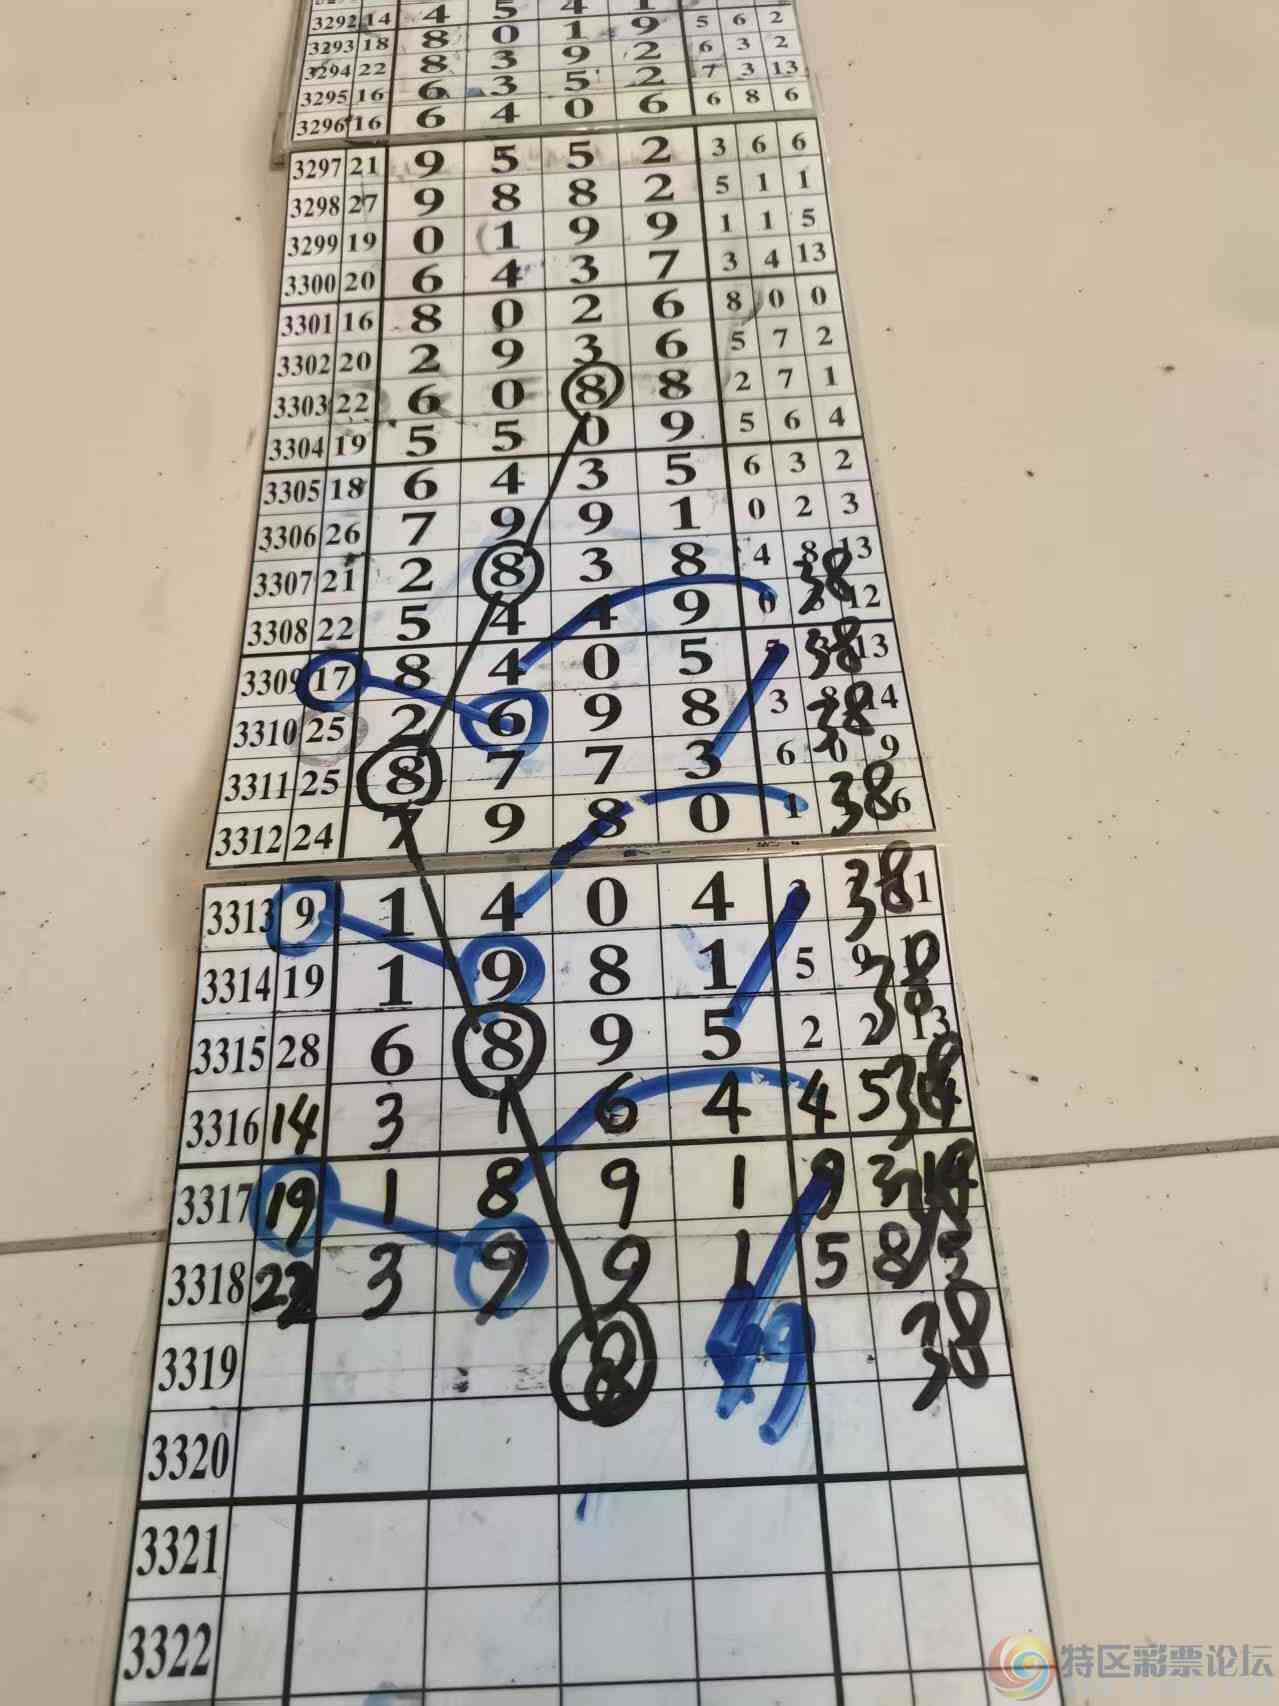 3292 14 4 5 4 1 5 6 2
3293 18 8 0 1 9 6 3 2
3294 22 8 3 9 2 7 3 13
3295 16 6 3 5 2 6 8 6
3296 16 6 4 0 6
3297 21 9 5 5 2 3 6 6
3298 27 9 8 8 2 5 1 1
3299 19 0 1 9 9 1 1 5
3300 20 6 4 3 7 3 4 13
3301 16 8 0 2 6 8 0 0
3302 20 2 9 3 6 5 7 2
3303 22 6 0 8 8 2 7 1
3304 19 5 5 0 9 5 6 4
3305 18 6 4 3 5 6 3 2
3306 26 7 9 9 1 0 2 3
3307 21 2 8 3 8 4 8 13
38
3308 22 5 4 4 9 12
3309 17 8 4 0 5 38 13
3310 25 2 6 9 8 3 8 14
38
3311 25 8 7 7 3 6 0 9
3312 24 7 9 8 0 1 38 6
3313 9 1 4 0 4 38 1
3314 19 1 9 8 1 5 9
38
3315 28 6 8 9 5 2 2 13
3316 14 3 1 6 4 4 5 38
3317 19 1 8 9 1 9 3 14
3318 22 3 9 9 1 5 8 3
3319 8 49 38
3320
3321
3322
特区彩票论坛